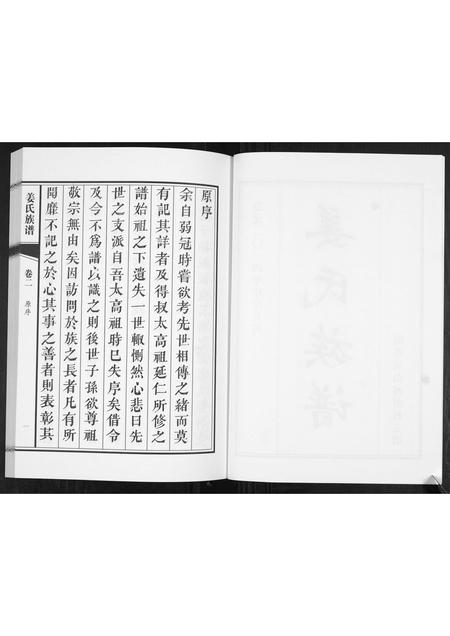 原序
余自弱冠時嘗欲考先世相傳之緒而莫
有記其詳者及得叔太高祖延仁所修之
譜始祖之下遺失一世輒惻然心悲曰先
世之支派自吾太高祖時已失序矣借令
及今不為譜以識之則後世子孫欲尊祖
敬宗無由矣因訪問於族之長者凡有所
聞靡不記之於心其事之善者則表彰其
姜氏族谱
卷二
原序
一
姜氏族谱